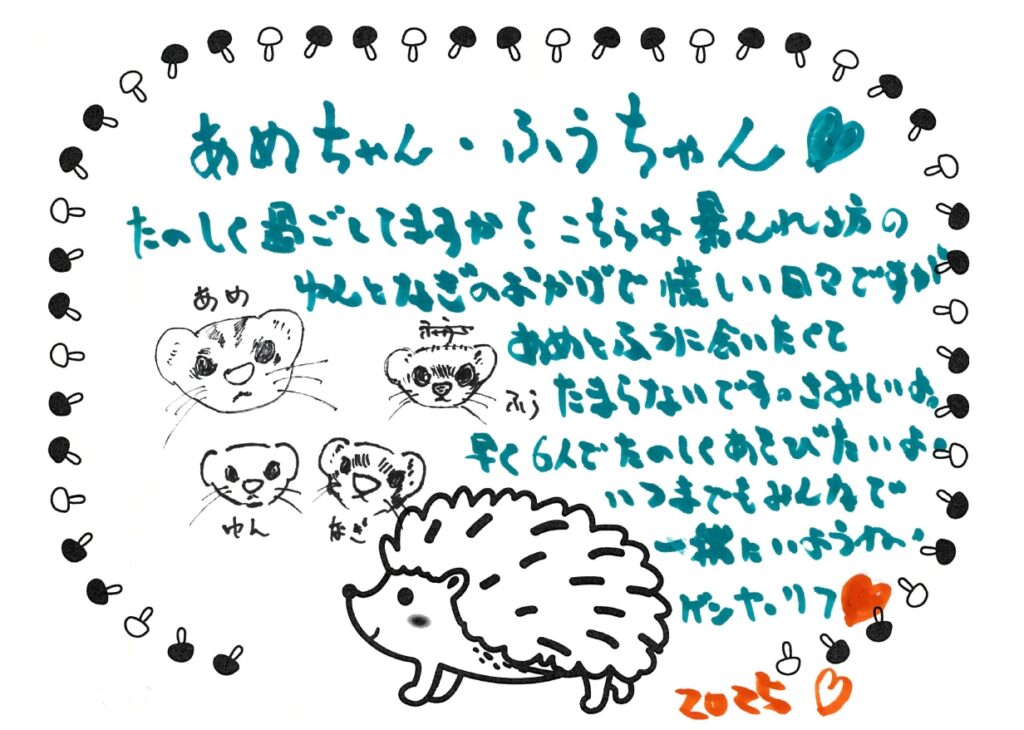 あめちゃん・ふうちゃん
たのしく過ごしてますか?こちらは暴れん坊の
ゆんとなぎのおかげで慌しい日々ですが
あめ
ふう
あめとふうに会いたくて
ふう
たまらないです。さみしいよ。
早く6人でたのしくあそびたいよ。
いつまでもみんなで
ゆん
なぎ
一緒にいようね。
2025